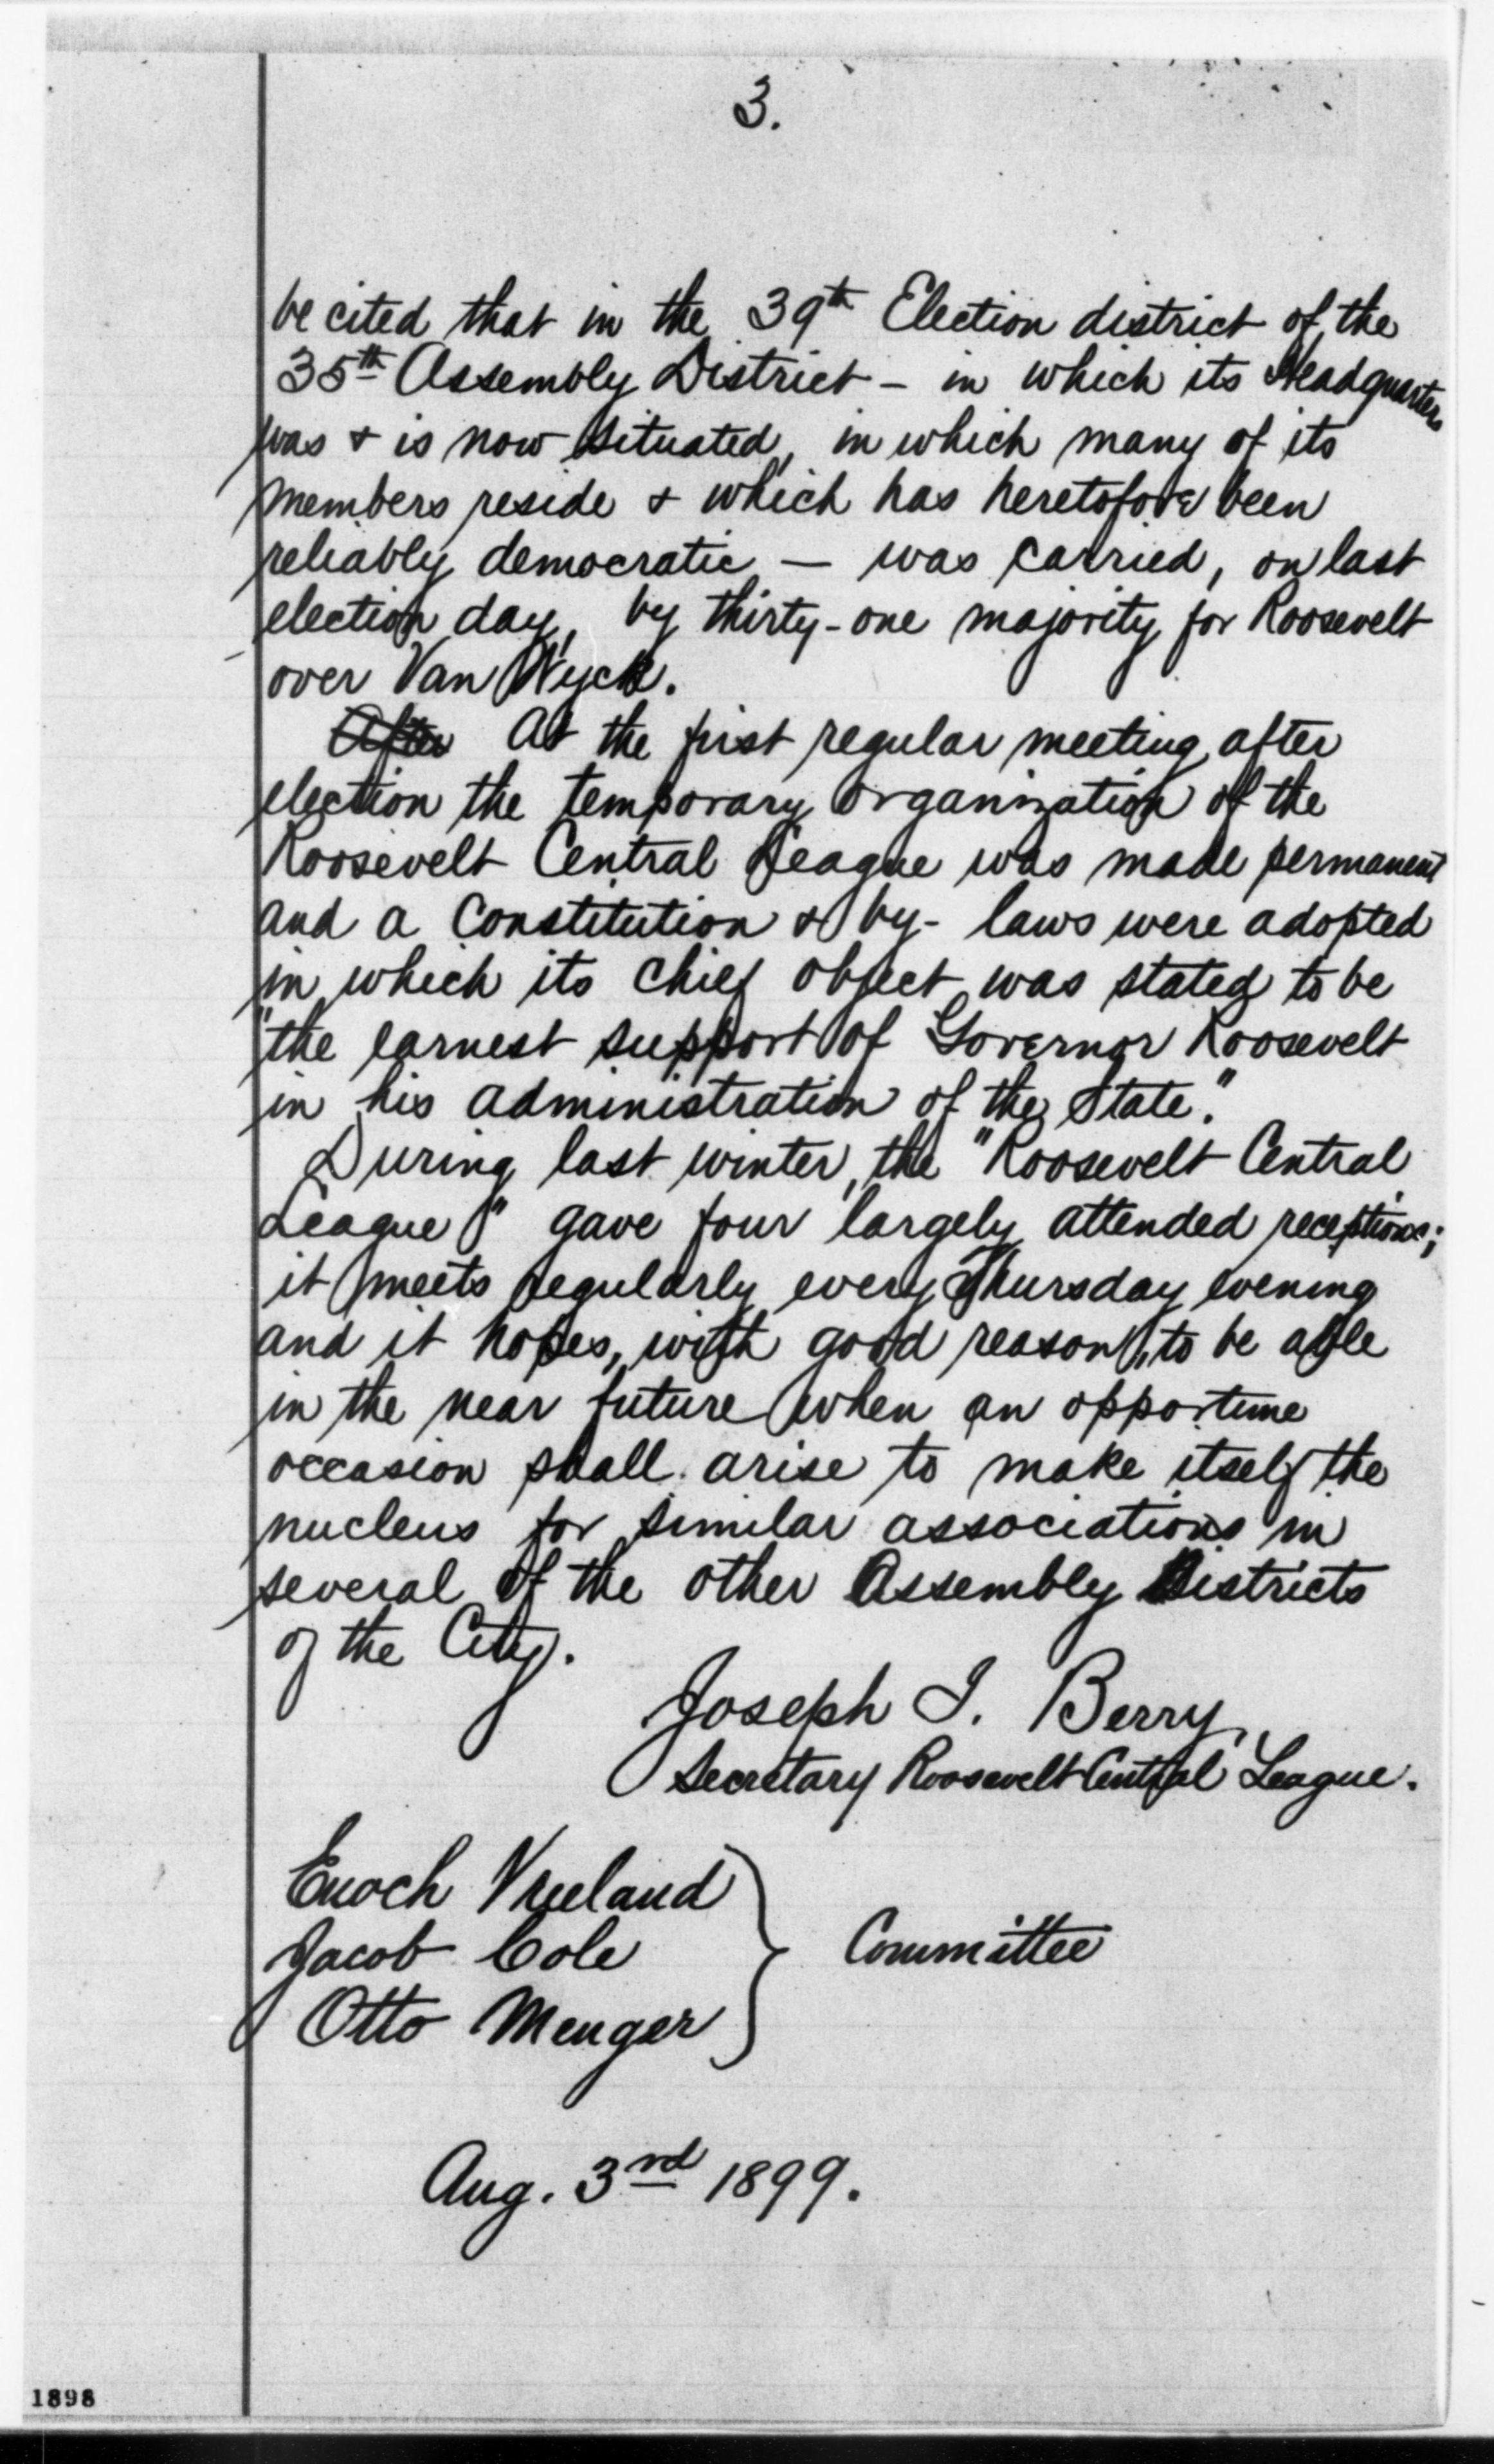 3.
be cited that in the 39th Election district of the
35th Assembly District - in which its Headquarters
was & is now situated, in which many of its
members reside & which has heretofore been
reliably democratic — was carried, on last
election day, by thirty-one majority for Roosevelt
over Van Wyck.
After At the first regular meeting after
election the temporary organization of the
Roosevelt Central League was made permanent
and a Constitution & by-laws were adopted
in which its chief object was stated to be
"the earnest support of Governor Roosevelt
in his administration of the State."
During last winter, the "Roosevelt Central
League" gave four largely attended receptions;
it meets regularly every Thursday evening
and it hopes, with good reason, to be able
in the near future when an opportune
occasion shall arise to make itself the
nucleus for similar associations in
several of the other Assembly Districts
of the City.
Joseph I. Berry
Secretary Roosevelt Central League.
Enoch Vreeland
Jacob Cole
Committee
Otto Menger
Aug. 3rd 1899.
1898